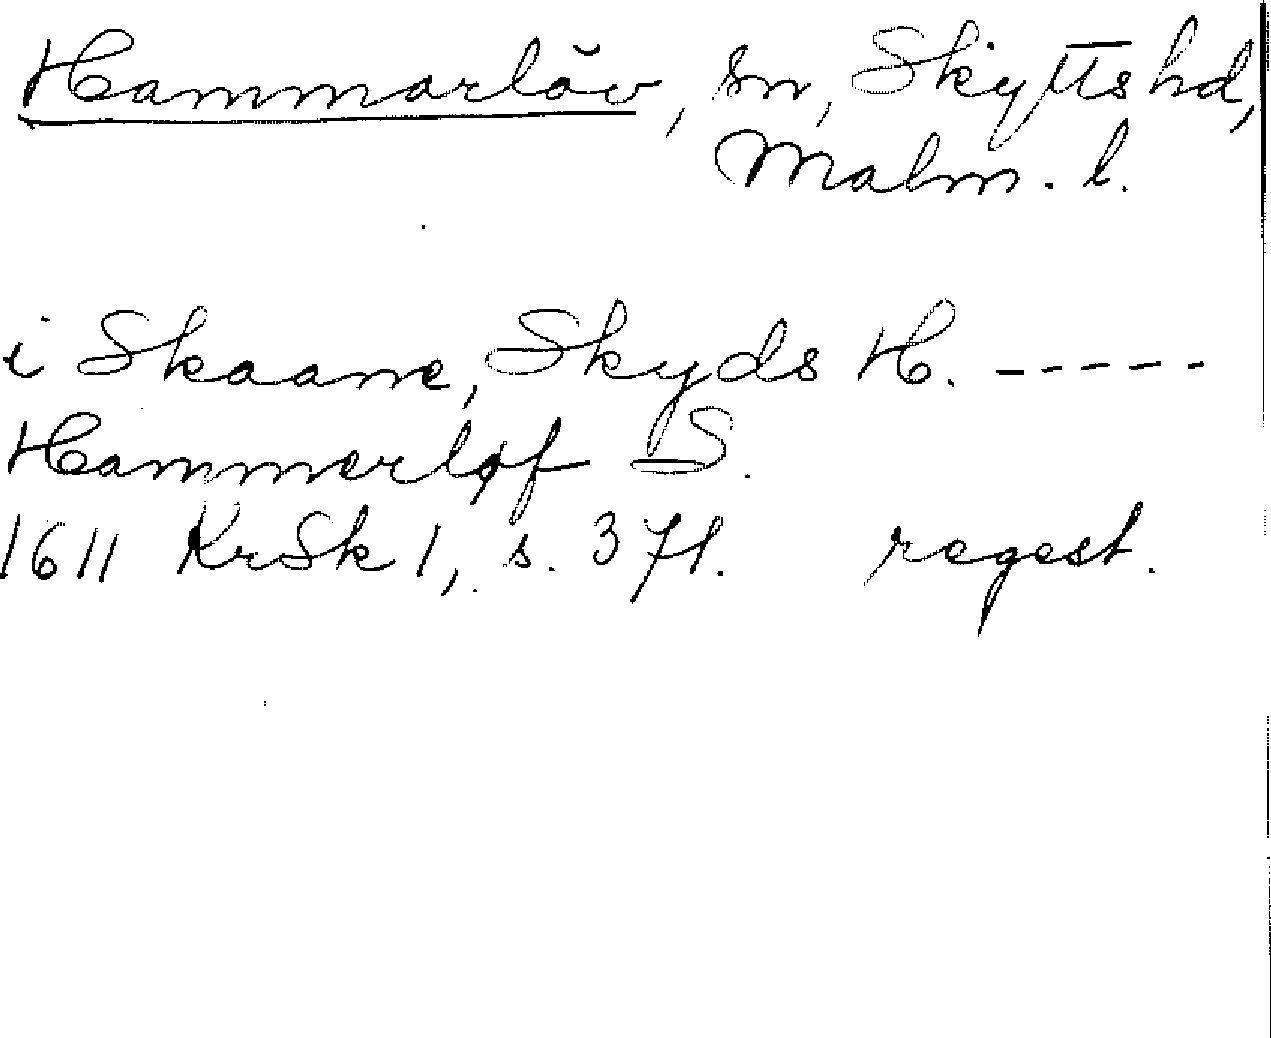 Hammarlöv, sn, Skytts hd,
Malm. l.
i Skaane, Skyds H. -----
Hammerløf S.
1611 KrSk 1, s. 371. regest.